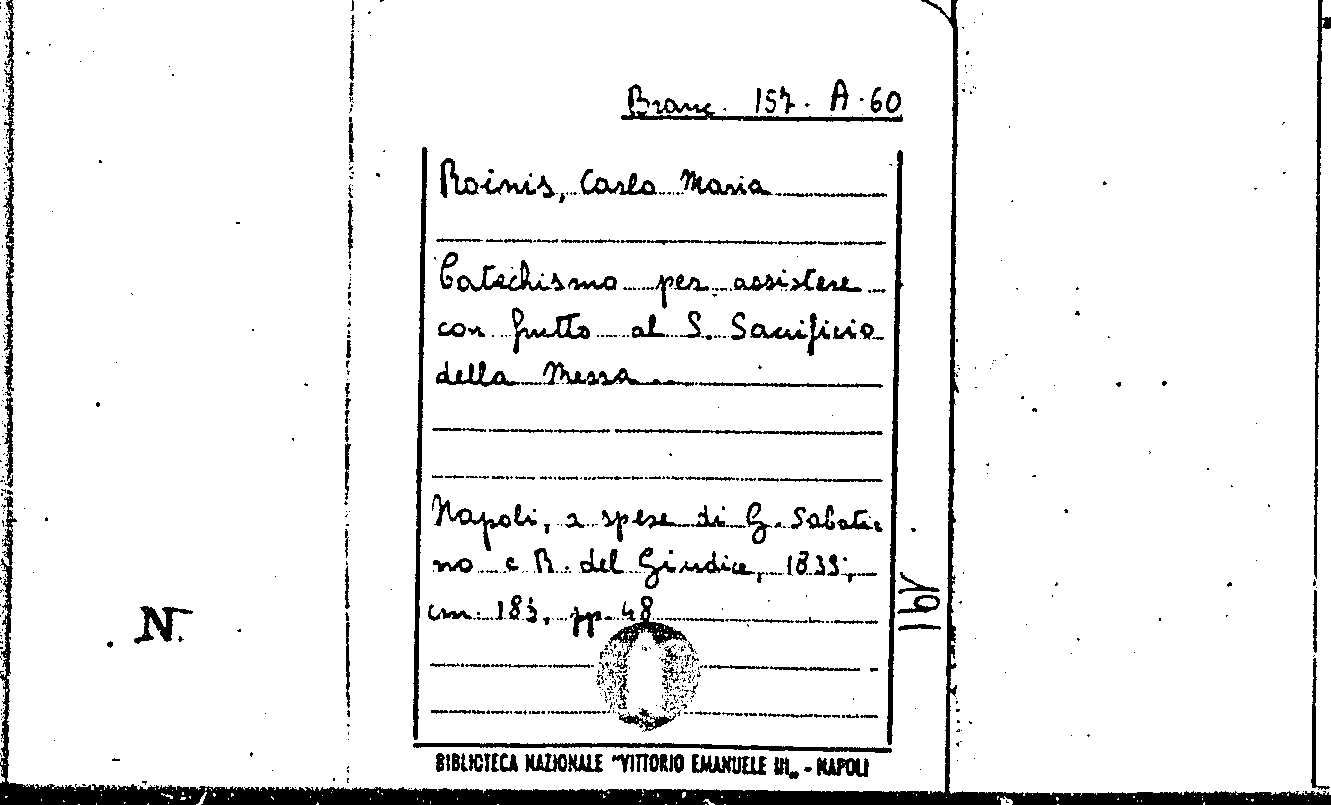 Branc. 157. A. 60
Roinis, Carlo Maria
Catechismo per assistere
con frutto al S. Sacrificio
della Messa..
Napoli, a spese di G. Sabati-
no e R. del Giudice, 1839;
cm. 18, pp. 48
N.
BIBLIOTECA NAZIONALE "VITTORIO EMANUELE III„ - NAPOLI